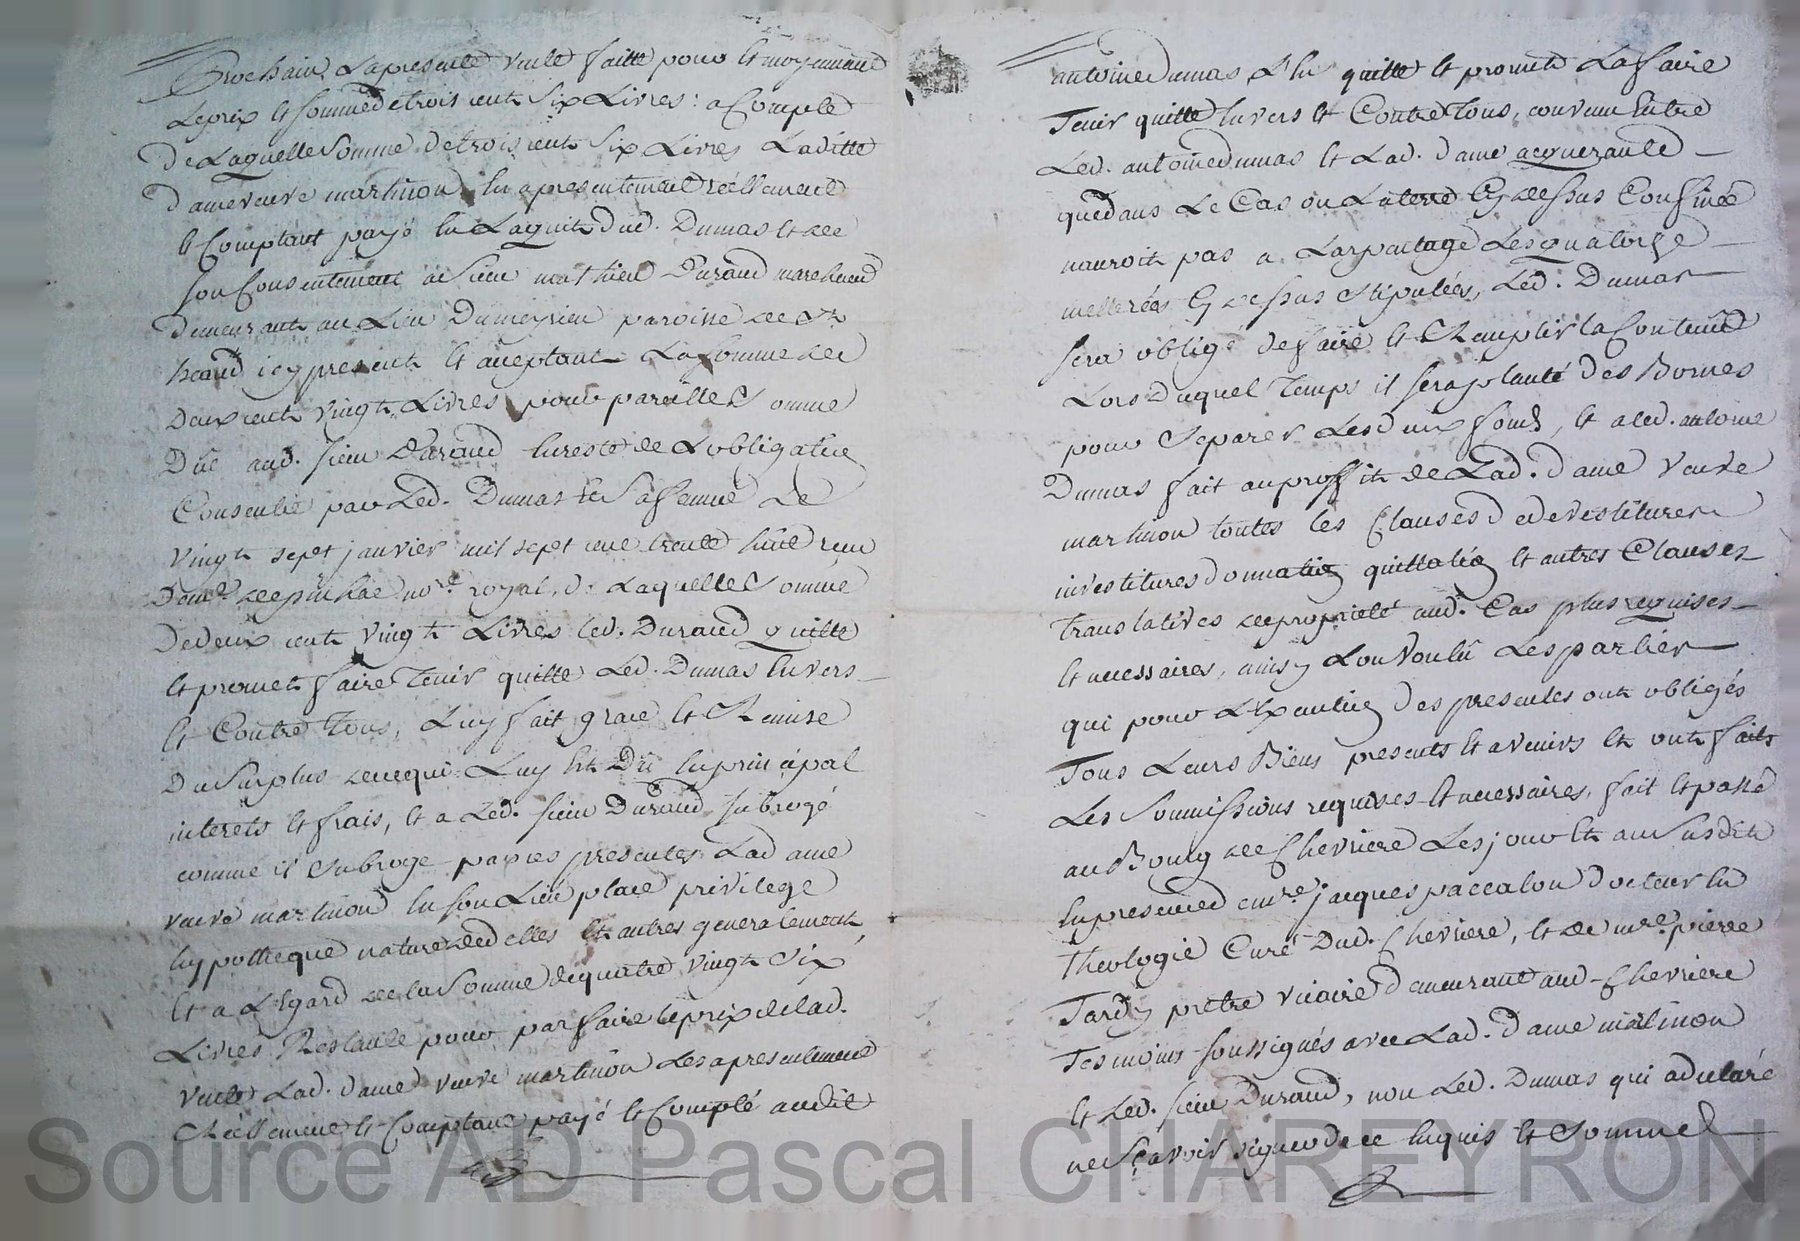 Prochain, La presente vente faitte pour et moyennant
Le prix et somme de trois cents six Livres : a Compte
de Laquelle Somme de trois cents Six Livres Laditte
dame veuve martinon En a presentement réellement
et Comptant payé En L'aquit dud. Dumas et de
son Consentement a Sieur mathieu Durand marchand
demeurant au Lieu Dumeynieu paroisse de St
heand icy present et aceptant La Somme de
Deux cents vingt Livres pour pareille Somme
Düe aud. Sieur Durand En reste de L'obligation
Consentie par Led. Dumas et Sa femme Le
vingt sept janvier mil sept cent trente huit reçu
De no.re royal, de Laquelle Somme
De deux cents vingt Livres led. Durand quitte
et promet faire Tenir quitte Led. Dumas Envers
et Contre Tous, Luy fait grace et Remise
Du Surplus de ce qui Luy Est Dü En principal
interets et frais, et a Led. Sieur Durand Subrogé
comme il Subroge par ces presentes Lad dame
veuve martinon En son Lieu place privilege
hypotheque nature dicelles et autres generalement
Et a L'Egard de la Somme de quatre vingt Six
Livres Restante pour parfaire le prix de lad.
vente Lad. dame veuve martinon Les a presentement
Réellement et Comptant payé et Compté audit
antoine Dumas L'En quitte et promet La faire
Tenir quitte Envers et Contre Tous, convenu Entre
Led. antoine dumas et Lad. dame acquerante
que dans Le Cas ou La terre Cy dessus Confinée
nauroit pas a Larpentage Les quatorze
metterées Cy dessus Stipulées, Led. Dumas
sera obligé de faire et Remplir la Contenüe
Lors Duquel Temps il sera planté Des Bornes
pour Separer Les Deux fonds, et a led. antoine
Dumas fait au proffit de Lad. dame veuve
martinon toutes les Clauses de devestitures
investitures donnation quittation et autres Clauses
translatives de proprieté aud. Cas plus requises
et necessaires, ainsy L'ont Voulû Les parties
qui pour L'Execution des presentes ont obligés
Tous Leurs Biens presents et avenirs et ont faits
Les Soumissions requises et necessaires, fait et passé
au Bourg de Chevriere Les jour et an Susdits
En presence de mre jacques paccalon docteur En
theologie Curé Dud. Chevriere, et de mre pierre
Tardy prêtre vicaire demeurant aud. Chevriere
Tesmoins soussignés avec Lad. dame martinon
et Led. Sieur Durand, non Led. Dumas qui a declaré
ne Sçavoir signer de ce Enquis et Sommé
Source AD Pascal CHAREYRON